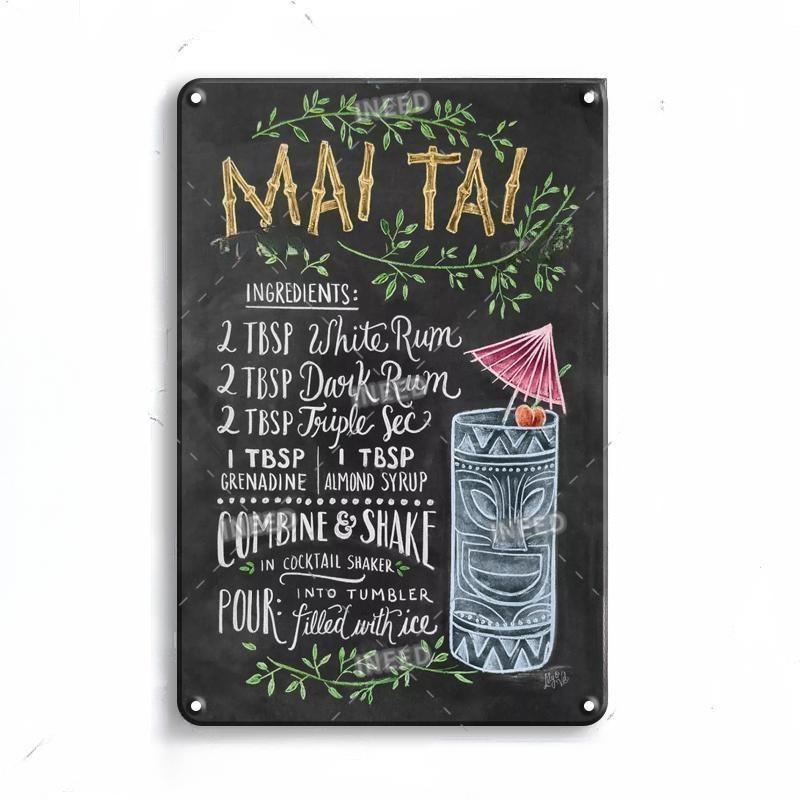 INEED
MAI TAI
INGREDIENTS:
2 TBSP White Rum
2 TBSP Dark Rum
INEED
2 TBSP Triple Sec
1 TBSP GRENADINE
1 TBSP ALMOND SYRUP
COMBINE & SHAKE
INEED
INEED
IN COCKTAIL SHAKER
POUR: INTO TUMBLER
filled with ice
INEED